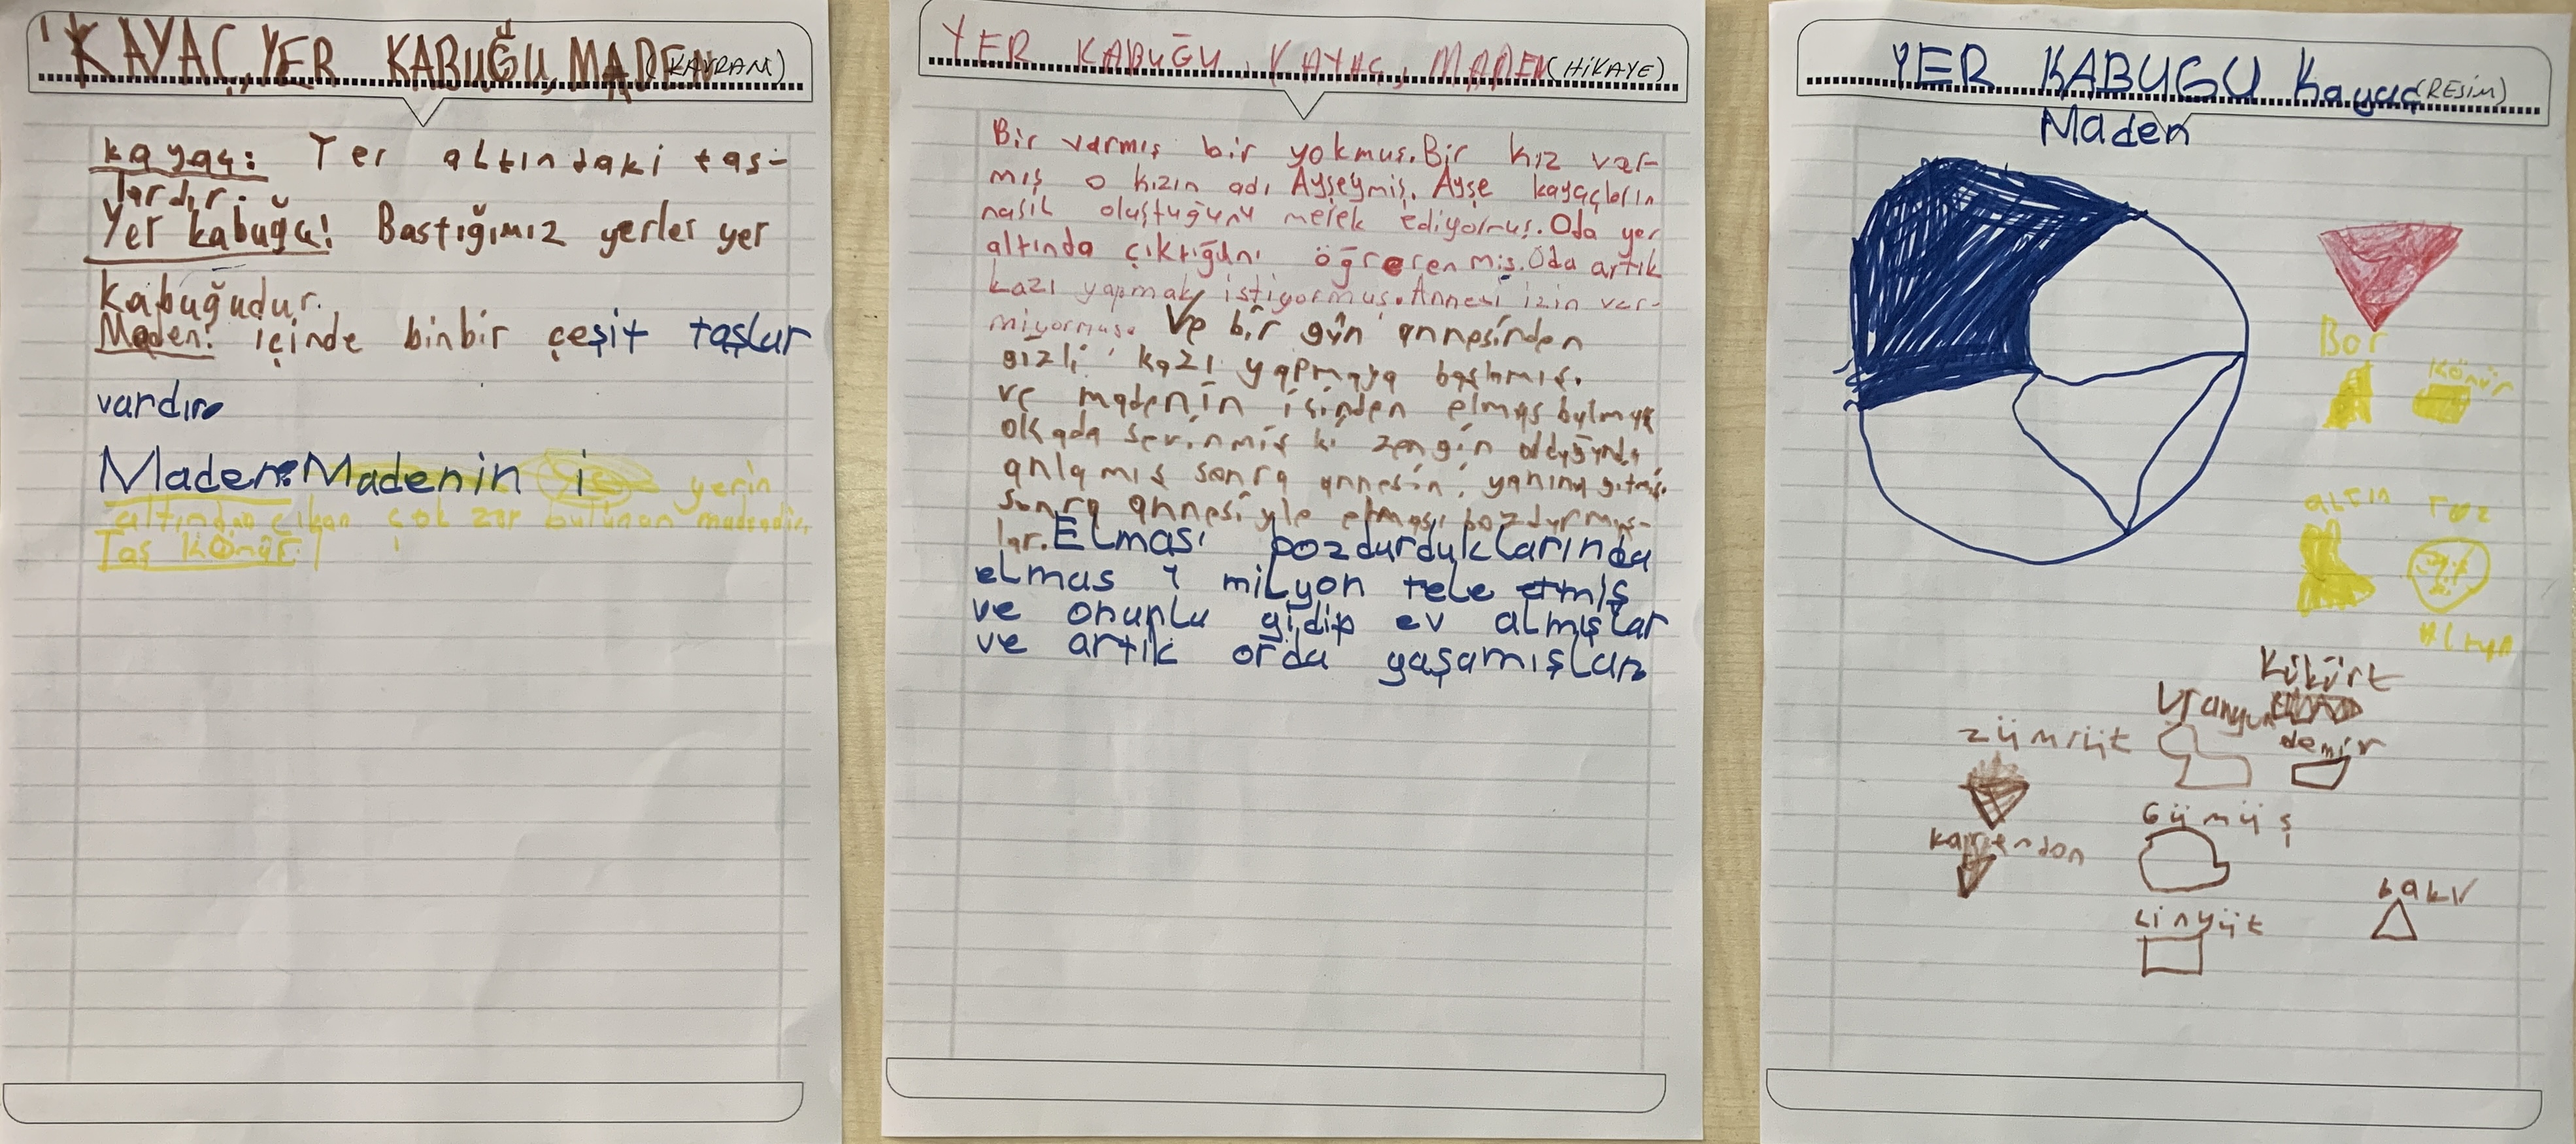 KAYAÇ, YER KABUĞU, MADEN (KAVRAM)
kayaç: Yer altındaki taş-
lardır.
Yer kabuğu: Bastığımız yerler yer
kabuğudur.
Maden: içinde binbir çeşit taşlar
vardır.
Maden: Madenin i yerin
altından çıkan çok zor bulunan madendir.
Taş Kömür:
YER KABUĞU, KAYAÇ, MADEN (HİKAYE)
Bir varmış bir yokmuş. Bir kız var-
mış o kızın adı Ayşeymiş. Ayşe kayaçların
nasıl oluştuğunu merek ediyormuş. Oda yer
altında çıktığını öğreren miş. Oda artık
kazı yapmak istiyormuş. Annesi izin ver-
miyormuş. Ve bir gün annesinden
gizli kazı yapmaya başlamış.
ve madenin içinden elmas bulmuş
okada sevinmiş ki zengin olduğunda
anlamış sonra annesini yanına gitmiş.
sonra annesiyle elması bozdurmuş-
lar. Elması bozdurduklarında
elmas 1 milyon tele etmiş
ve onunla gidip ev almışlar
ve artık orda yaşamışlar
YER KABUGU Kayaç (RESİM)
Maden
Bor
Kömür
altın
Toz
Altın
Kükürt
Uranyum
zümrüt
demir
Gümüş
bakır
Linyüt